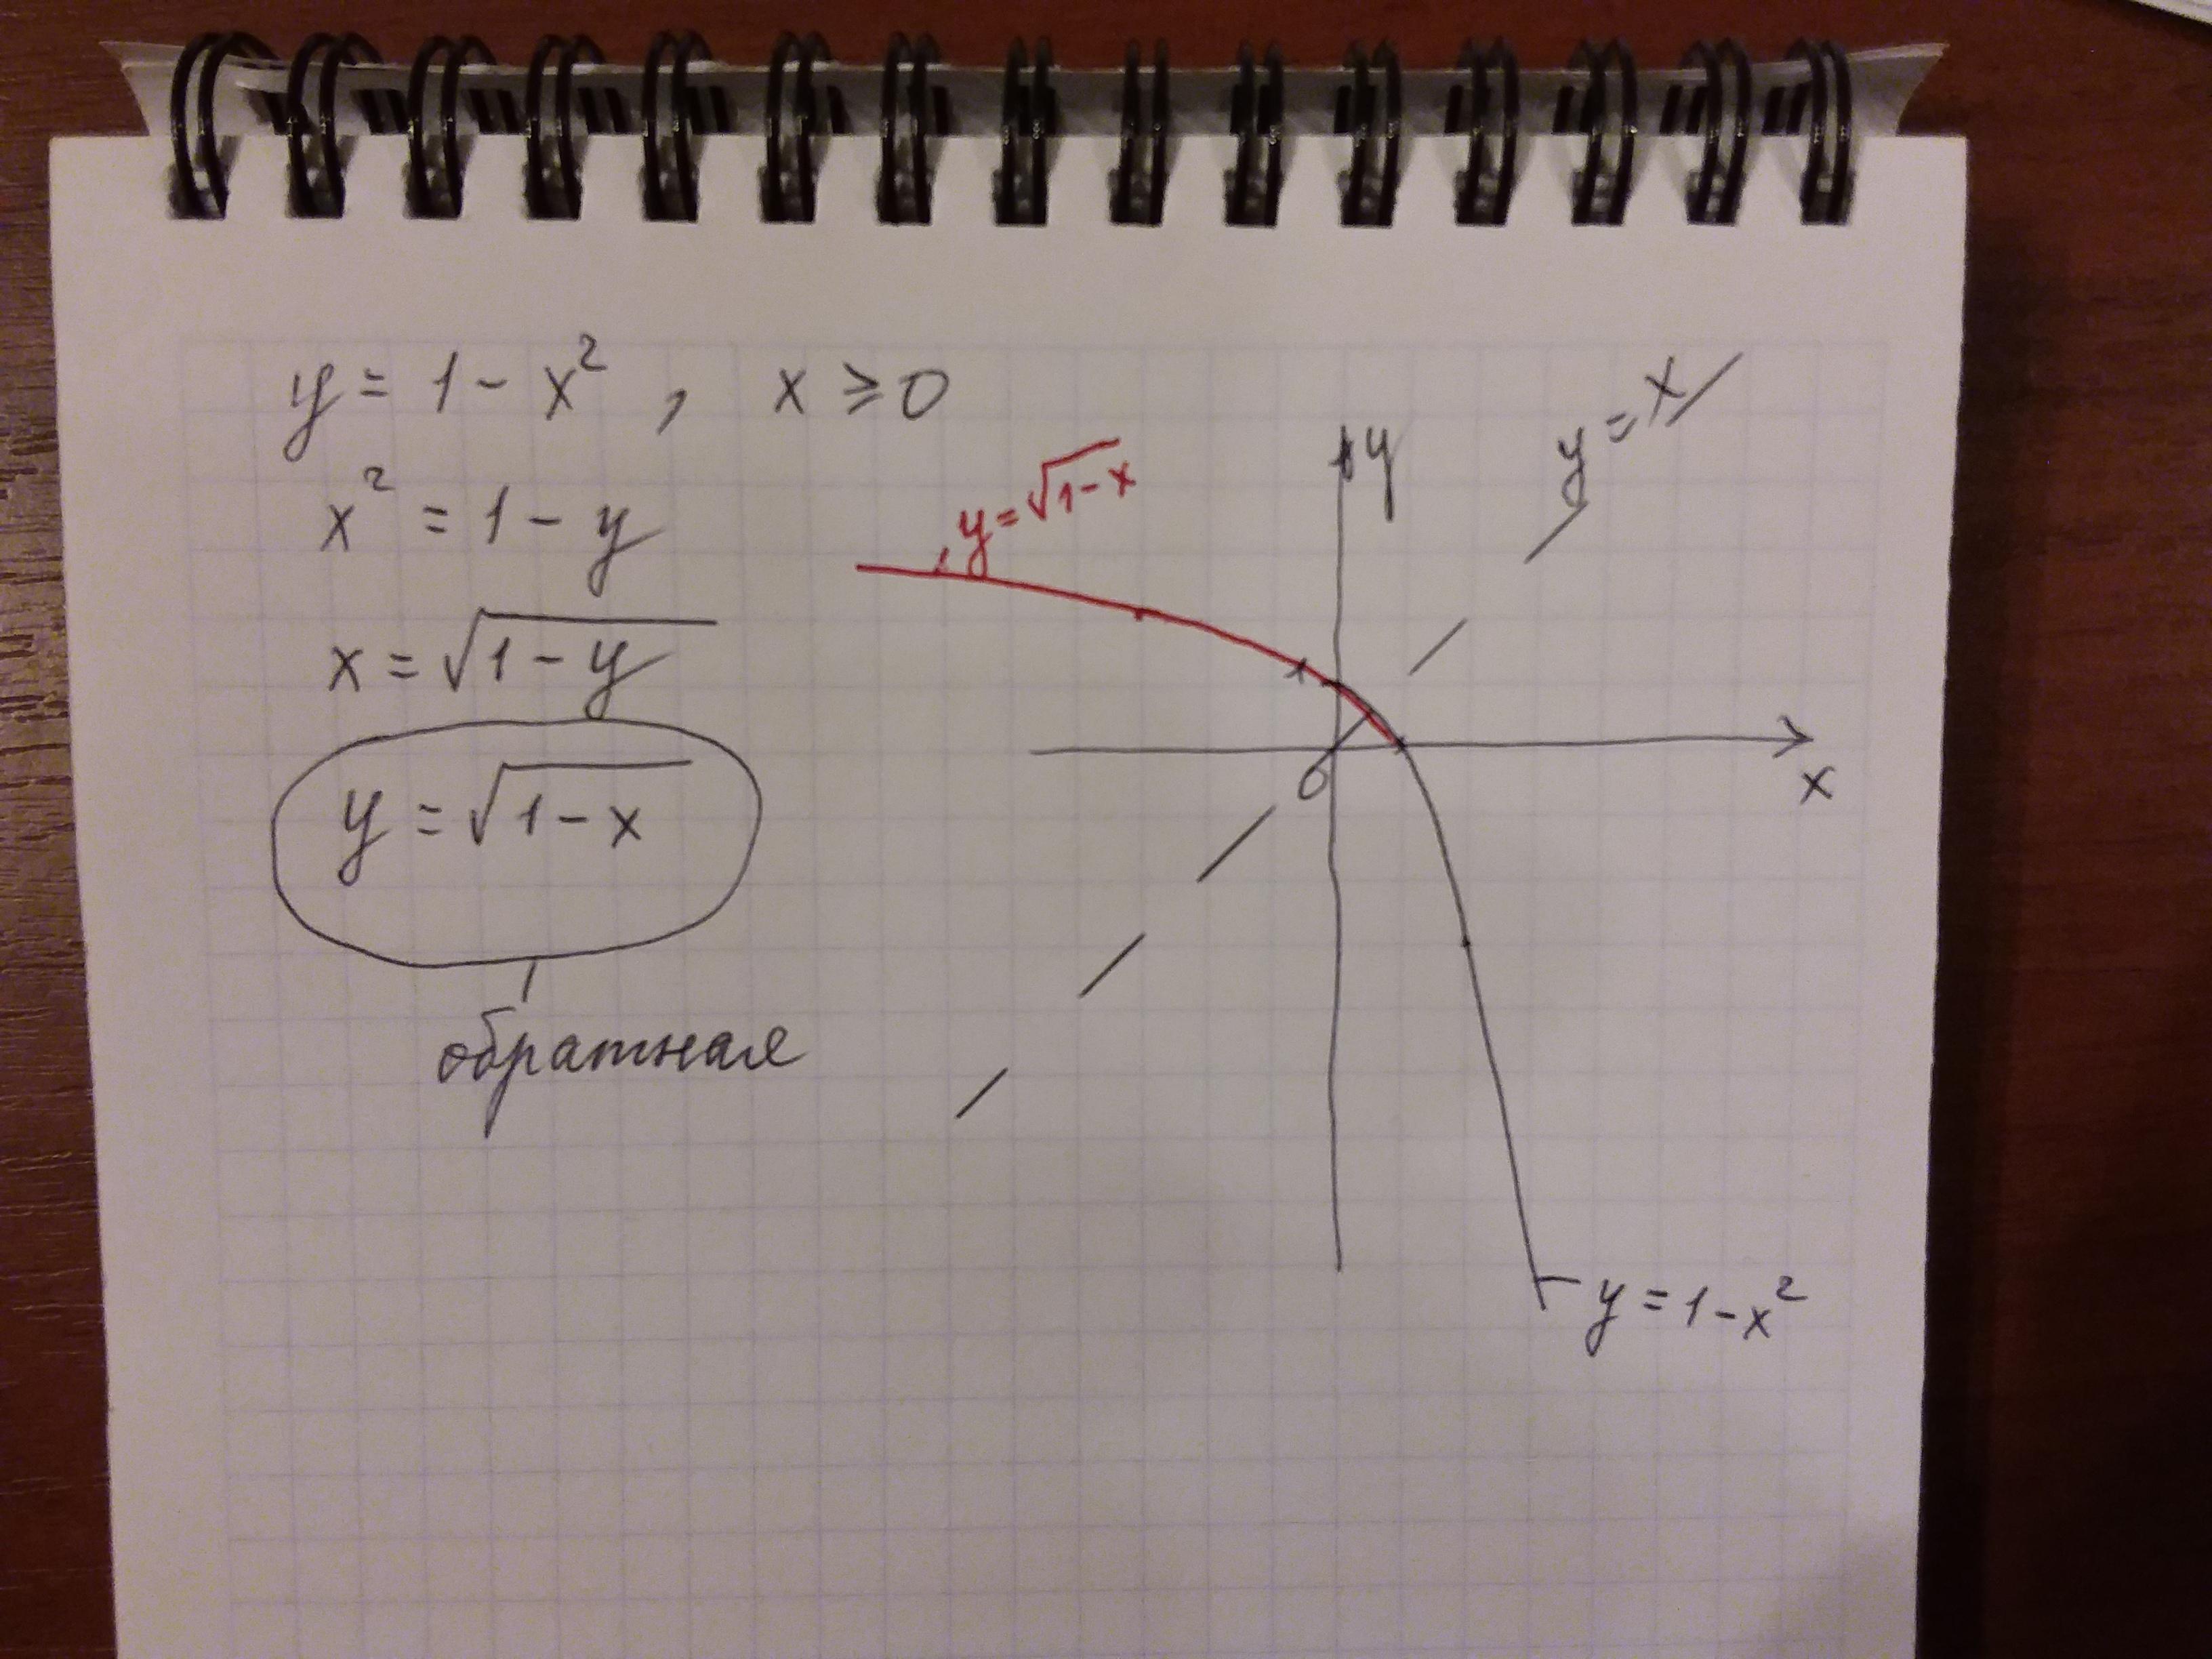 y = 1 - x² , x ≥ 0
x² = 1 - y
x = √1 - y
y = √1 - x
обратная
y = √1 - x
y
y = x
1
0
x
y = 1 - x²